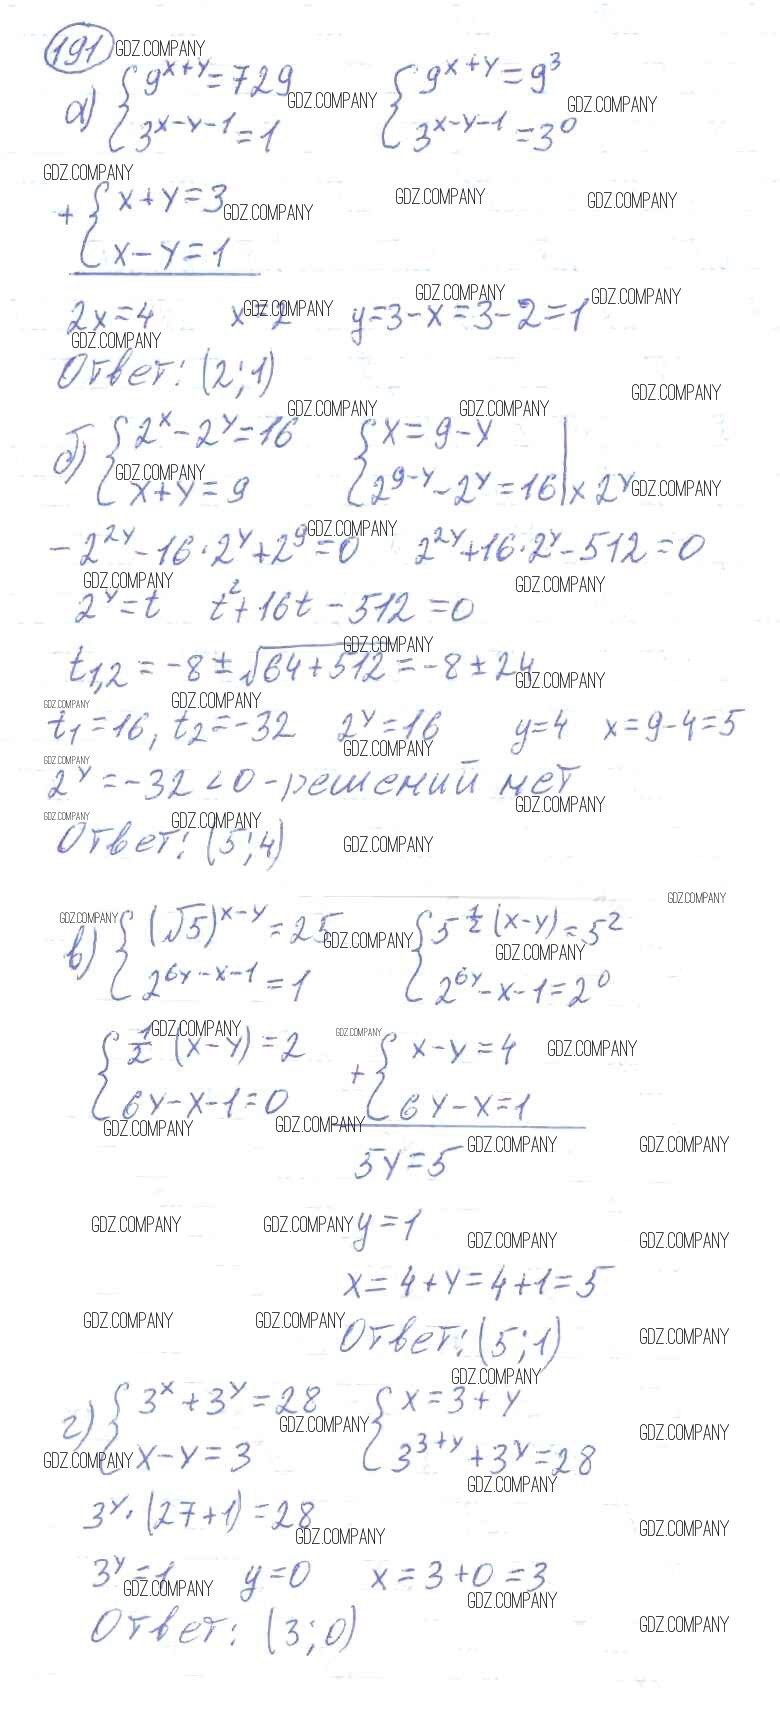 191 GDZ.COMPANY
а) { 9^(x+y) = 729 { 9^(x+y) = 9^3
GDZ.COMPANY GDZ.COMPANY
{ 3^(x-y-1) = 1 { 3^(x-y-1) = 3^0
GDZ.COMPANY
+ { x+y=3 GDZ.COMPANY GDZ.COMPANY GDZ.COMPANY
{ x-y=1
GDZ.COMPANY GDZ.COMPANY GDZ.COMPANY
2x=4 x=2 y=3-x=3-2=1
GDZ.COMPANY
Ответ: (2;1)
GDZ.COMPANY GDZ.COMPANY GDZ.COMPANY
б) { 2^x - 2^y = 16 { x=9-y
GDZ.COMPANY GDZ.COMPANY
{ x+y=9 { 2^(9-y) - 2^y = 16 | x 2^y
GDZ.COMPANY
-2^(2y) - 16·2^y + 2^9 = 0 2^(2y) + 16·2^y - 512 = 0
GDZ.COMPANY GDZ.COMPANY
2^y = t t^2 + 16t - 512 = 0
GDZ.COMPANY
t1,2 = -8 ± √(64+512) = -8 ± 24
GDZ.COMPANY GDZ.COMPANY GDZ.COMPANY
t1 = 16, t2 = -32 2^y = 16 y=4 x=9-4=5
GDZ.COMPANY GDZ.COMPANY
2^y = -32 < 0 - решений нет
GDZ.COMPANY GDZ.COMPANY GDZ.COMPANY
Ответ: (5;4) GDZ.COMPANY
GDZ.COMPANY
GDZ.COMPANY GDZ.COMPANY GDZ.COMPANY
в) { (√5)^(x-y) = 25 { 5^(1/2 (x-y)) = 5^2
{ 2^(6y-x-1) = 1 { 2^(6y-x-1) = 2^0
GDZ.COMPANY GDZ.COMPANY GDZ.COMPANY
{ 1/2 (x-y) = 2 + { x-y=4
{ 6y-x-1=0 { 6y-x=1
GDZ.COMPANY GDZ.COMPANY GDZ.COMPANY GDZ.COMPANY
5y=5
GDZ.COMPANY GDZ.COMPANY y=1 GDZ.COMPANY GDZ.COMPANY
x=4+y=4+1=5
GDZ.COMPANY GDZ.COMPANY GDZ.COMPANY
Ответ: (5;1)
GDZ.COMPANY
г) { 3^x + 3^y = 28 { x=3+y
GDZ.COMPANY GDZ.COMPANY
GDZ.COMPANY { x-y=3 { 3^(3+y) + 3^y = 28
GDZ.COMPANY
3^y·(27+1) = 28
GDZ.COMPANY GDZ.COMPANY
3^y = 1 y=0 x=3+0=3
GDZ.COMPANY GDZ.COMPANY
Ответ: (3;0) GDZ.COMPANY